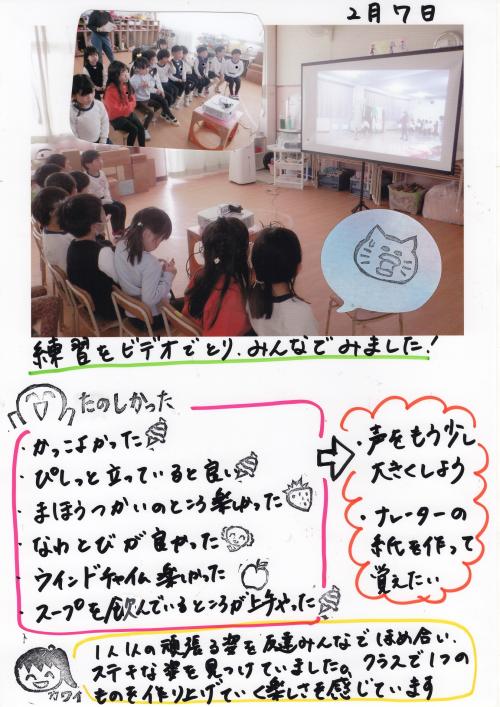 2月7日
練習をビデオでとり、みんなでみました!
たのしかった
・かっこよかった
・ぴしっと立っていると良い
・まほうつかいのところ楽しかった
・なわとびが良かった
・ウインドチャイム楽しかった
・スープを飲んでいるところが上手だった
・声をもう少し
大きくしよう
・ナレーターの
紙を作って
覚えたい
1人1人の頑張る姿を友達みんなでほめ合い、
ステキな姿を見つけていました。クラスで1つの
ものを作り上げていく楽しさを感じています
カワイ